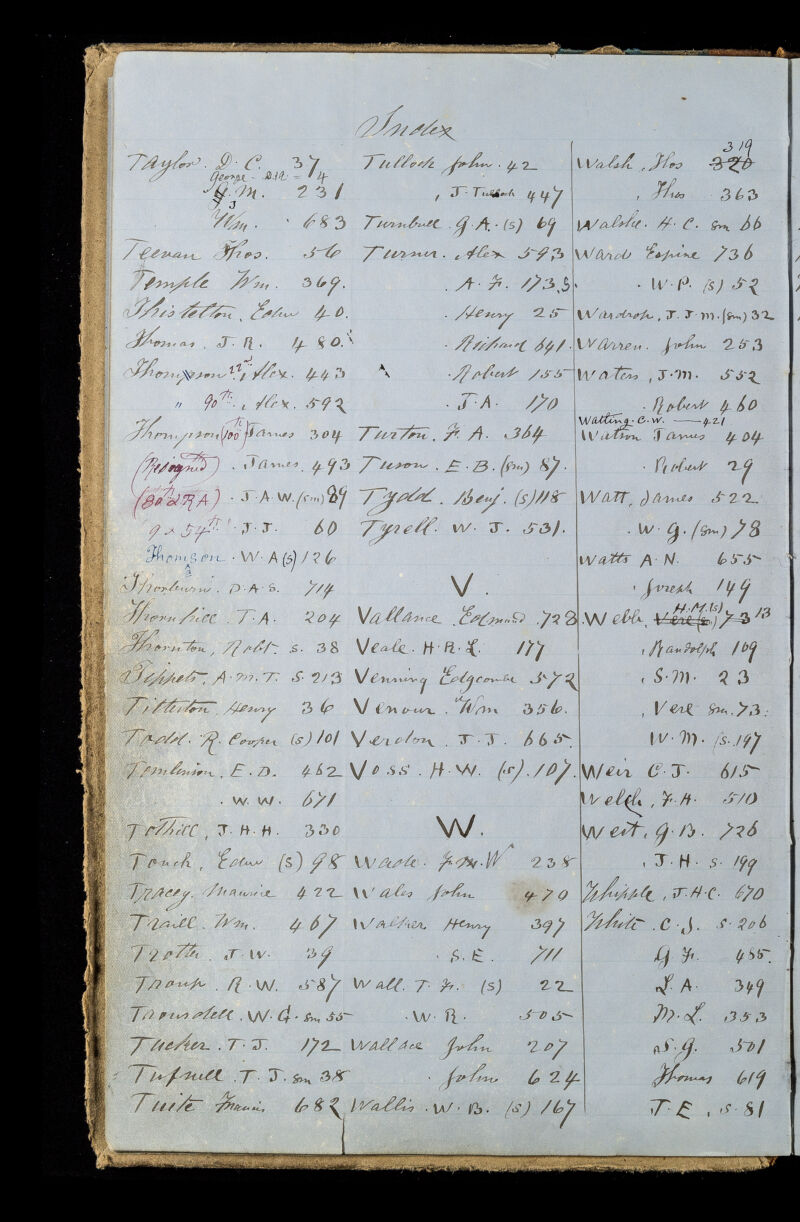 Index
Taylor. D. C. 37
George. 4
G. M. 231
J
Wm. 683
Teevan Thos. 56
Temple Wm. 369.
Thistelton, Edw 40.
Thomas. J. R. 480.
Thompson 22nd, Alex. 443
" 90th, Alex. 592
Thompson (100th) James 304
(Resigned) . James. 493
(80th & RA) . J. A. W. (sm) 89
9 & 54th . J. J. 60
Thomson . W. A (s) 126
Thorburn. D. A. S. 714
Thornhill. T. A. 204
Thornton, Robt. s. 38
Tippets. A. M. T. S. 213
Titterton. Henry 36
Todd. R. Cooper (s) 101
Tomlinson, E. D. 462
. W. W. 671
Tothill, J. H. H. 330
Touch, Edw (s) 98
Tracey. Maurice 422
Traill. Wm. 467
Trotter. J. W. 39
Troup. R. W. 587
Trousdell. W. G. sm 55
Tucker. T. J. 172
Tufnell. T. J. sm 38
Tuite Francis 682
Tulloch John. 42
, J. Tulloch 447
Turnbull. G. A. (s) 69
Turner. Alex 593
. A. F. 173 S.
. Henry 25
. Richard 641.
. Robert 155
. J. A. 170
Turton. F. A. 364
Tuson. E. B. (sm) 87.
Tydd. Benj. (s) 118
Tyrell. W. J. 531.
V.
Vallance. Edmund. 728.
Veale. H. R. L. 177
Venning Edgcombe 572
Venour. Wm 356.
Verdon. J. J. 665.
Voss. H. W. (s). 107.
W.
Wade. F. W 238
Wales John 470
Walker Henry 397
. S. E. 711
Wall. T. F. (s) 22
. W. R. 505
Wallace John 207
. John 624
Wallis. W. B. (s) 167
319
Walsh, Thos 320
, Thos 363
Walshe. H. C. sm 66
Ward Espine 736
. W. P. (s) 52
Wardrop, J. J. M. (sm) 32
Warren. John 253
Waters, J. M. 552
. Robert 460
Watling. C. W. — 421
Watson James 404
. Robert 29
Watt, James 522
. W. G. (sm) 78
Watts A. N. 655
. Joseph 149
H. M. (s) 13
Webb, Vere (s) 73
, Randolph 109
, S. M. 23
, Vere sm. 73.
W. M. (s. 197
Weir C. J. 615
Welch, F. H. 510
West, G. B. 726
, J. H. s. 199
Whipple, J. H. C. 670
White. C. J. s. 206
G. F. 455.
L. A. 349
M. L. 353
S. G. 501
Thomas 619
J. E, s. 81